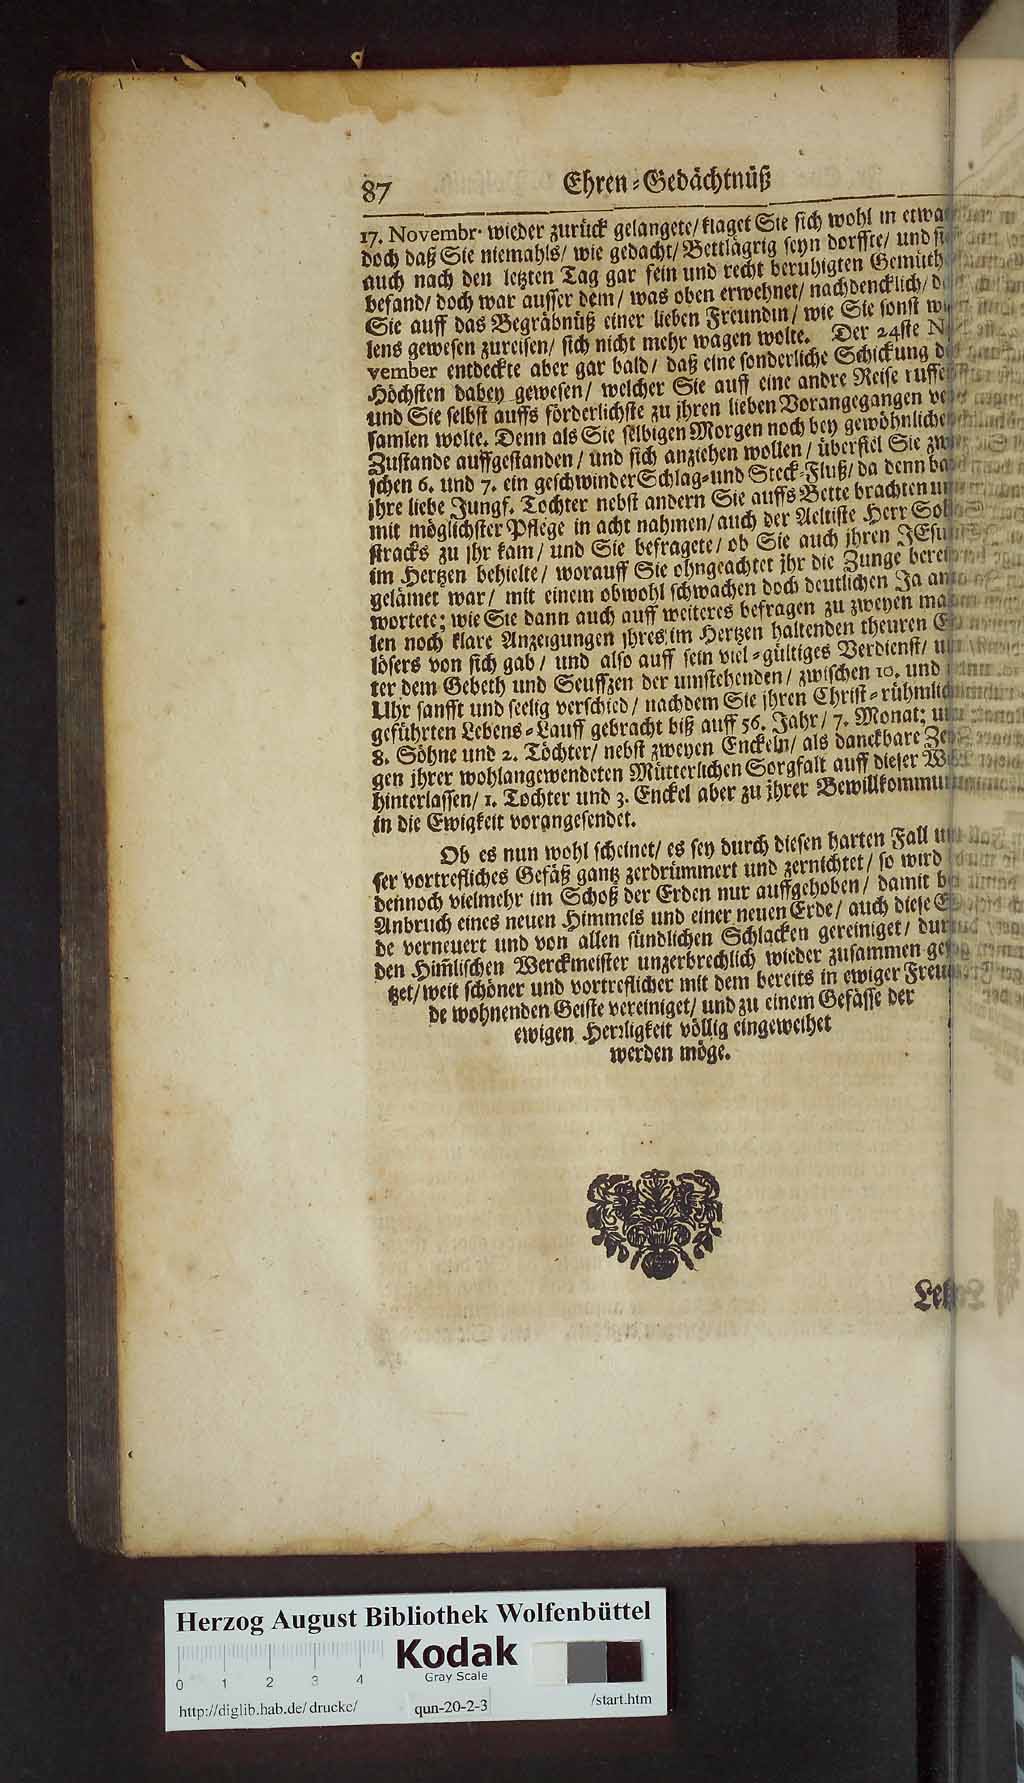 87 Ehren-Gedächtnüß
17. Novembr. wieder zurück gelangete/ klaget Sie sich wohl in etwa
doch daß Sie niemahls/ wie gedacht/ Bettlägrig seyn dorffte/ und
auch nach den letzten Tag gar fein und recht beruhigten Gemüth
befand/ doch war ausser dem/ was oben erwehnet/ nachdencklich/
Sie auff das Begräbnüß einer lieben Freundin/ wie Sie sonst
lens gewesen zureisen/ sich nicht mehr wagen wolte. Der 24ste
vember entdeckte aber gar bald/ daß eine sonderliche Schickung
Höchsten dabey gewesen/ welcher Sie auff eine andre Reise ruffe
und Sie selbst auffs förderlichste zu jhren lieben Vorangegangen
samlen wolte. Denn als Sie selbigen Morgen noch bey gewöhnliche
Zustande auffgestanden/ und sich anziehen wollen/ überfiel Sie zw
schen 6. und 7. ein geschwinder Schlag-und Steck-Fluß/ da denn
jhre liebe Jungf. Tochter nebst andern Sie auffs Bette brachten
mit möglichster Pflege in acht nahmen/ auch der Aeltiste Herr
stracks zu jhr kam/ und Sie befragete/ ob Sie auch jhren JEsu
im Hertzen behielte/ worauff Sie ohngeachtet jhr die Zunge berei
gelämet war/ mit einem obwohl schwachen doch deutlichen Ja an
wortete; wie Sie dann auch auff weiteres befragen zu zweyen ma
len noch klare Anzeigungen jhres im Hertzen haltenden theuren
lösers von sich gab/ und also auff sein viel-gültiges Verdienst/
ter dem Gebeth und Seuffzen der umstehenden/ zwischen 10. und
Uhr sanfft und seelig verschied/ nachdem Sie jhren Christ-rühmlic
geführten Lebens-Lauff gebracht biß auff 56. Jahr/ 7. Monat;
8. Söhne und 2. Töchter/ nebst zweyen Enckeln/ als danckbare
gen jhrer wohlangewendeten Mütterlichen Sorgfalt auff dieser
hinterlassen/ 1. Tochter und 3. Enckel aber zu jhrer Bewillkommu
in die Ewigkeit vorangesendet.
Ob es nun wohl scheinet/ es sey durch diesen harten Fall
ser vortrefliches Gefäß gantz zerdrümmert und zernichtet/ so wird
dennoch vielmehr im Schoß der Erden nur auffgehoben/ damit
Anbruch eines neuen Himmels und einer neuen Erde/ auch diese
de verneuert und von allen sündlichen Schlacken gereiniget/
den Him̃lischen Werckmeister unzerbrechlich wieder zusammen
tzet/ weit schöner und vortreflicher mit dem bereits in ewiger Freu
de wohnenden Geiste vereiniget/ und zu einem Gefässe der
ewigen Herrligkeit völlig eingeweihet
werden möge.
Herzog August Bibliothek Wolfenbüttel
Kodak
Gray Scale
0 1 2 3 4
http://diglib.hab.de/drucke/ qun-20-2-3 /start.htm